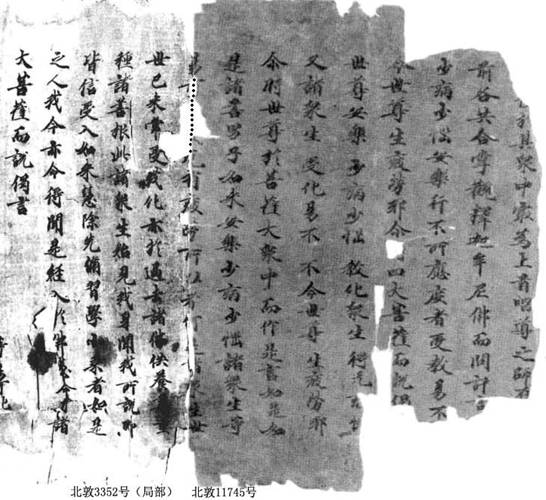 於其衆中最為上首唱導之師在
前各共合掌觀釋迦牟尼佛而問訊言
少病少惱安樂行不所應度者受教易不
令世尊生疲勞耶尒四大菩薩而說偈
世尊安樂 少病少惱 教化衆生 得无
又諸衆生 受化易不 不令世尊 生疲勞耶
尒時世尊於菩薩大衆中而作是言如是如
是諸善男子如來安樂少病少惱諸衆生等
有疲勞所以者何是諸衆生世
世已來常受我化亦於過去諸佛供養
種諸善根此諸衆生始見我身聞我所說即
皆信受入如來慧除先修習學小乘者如是
之人我今亦令得聞是經入於佛慧尒時諸
大菩薩而說偈言
北敦3352号（局部） 北敦11745号